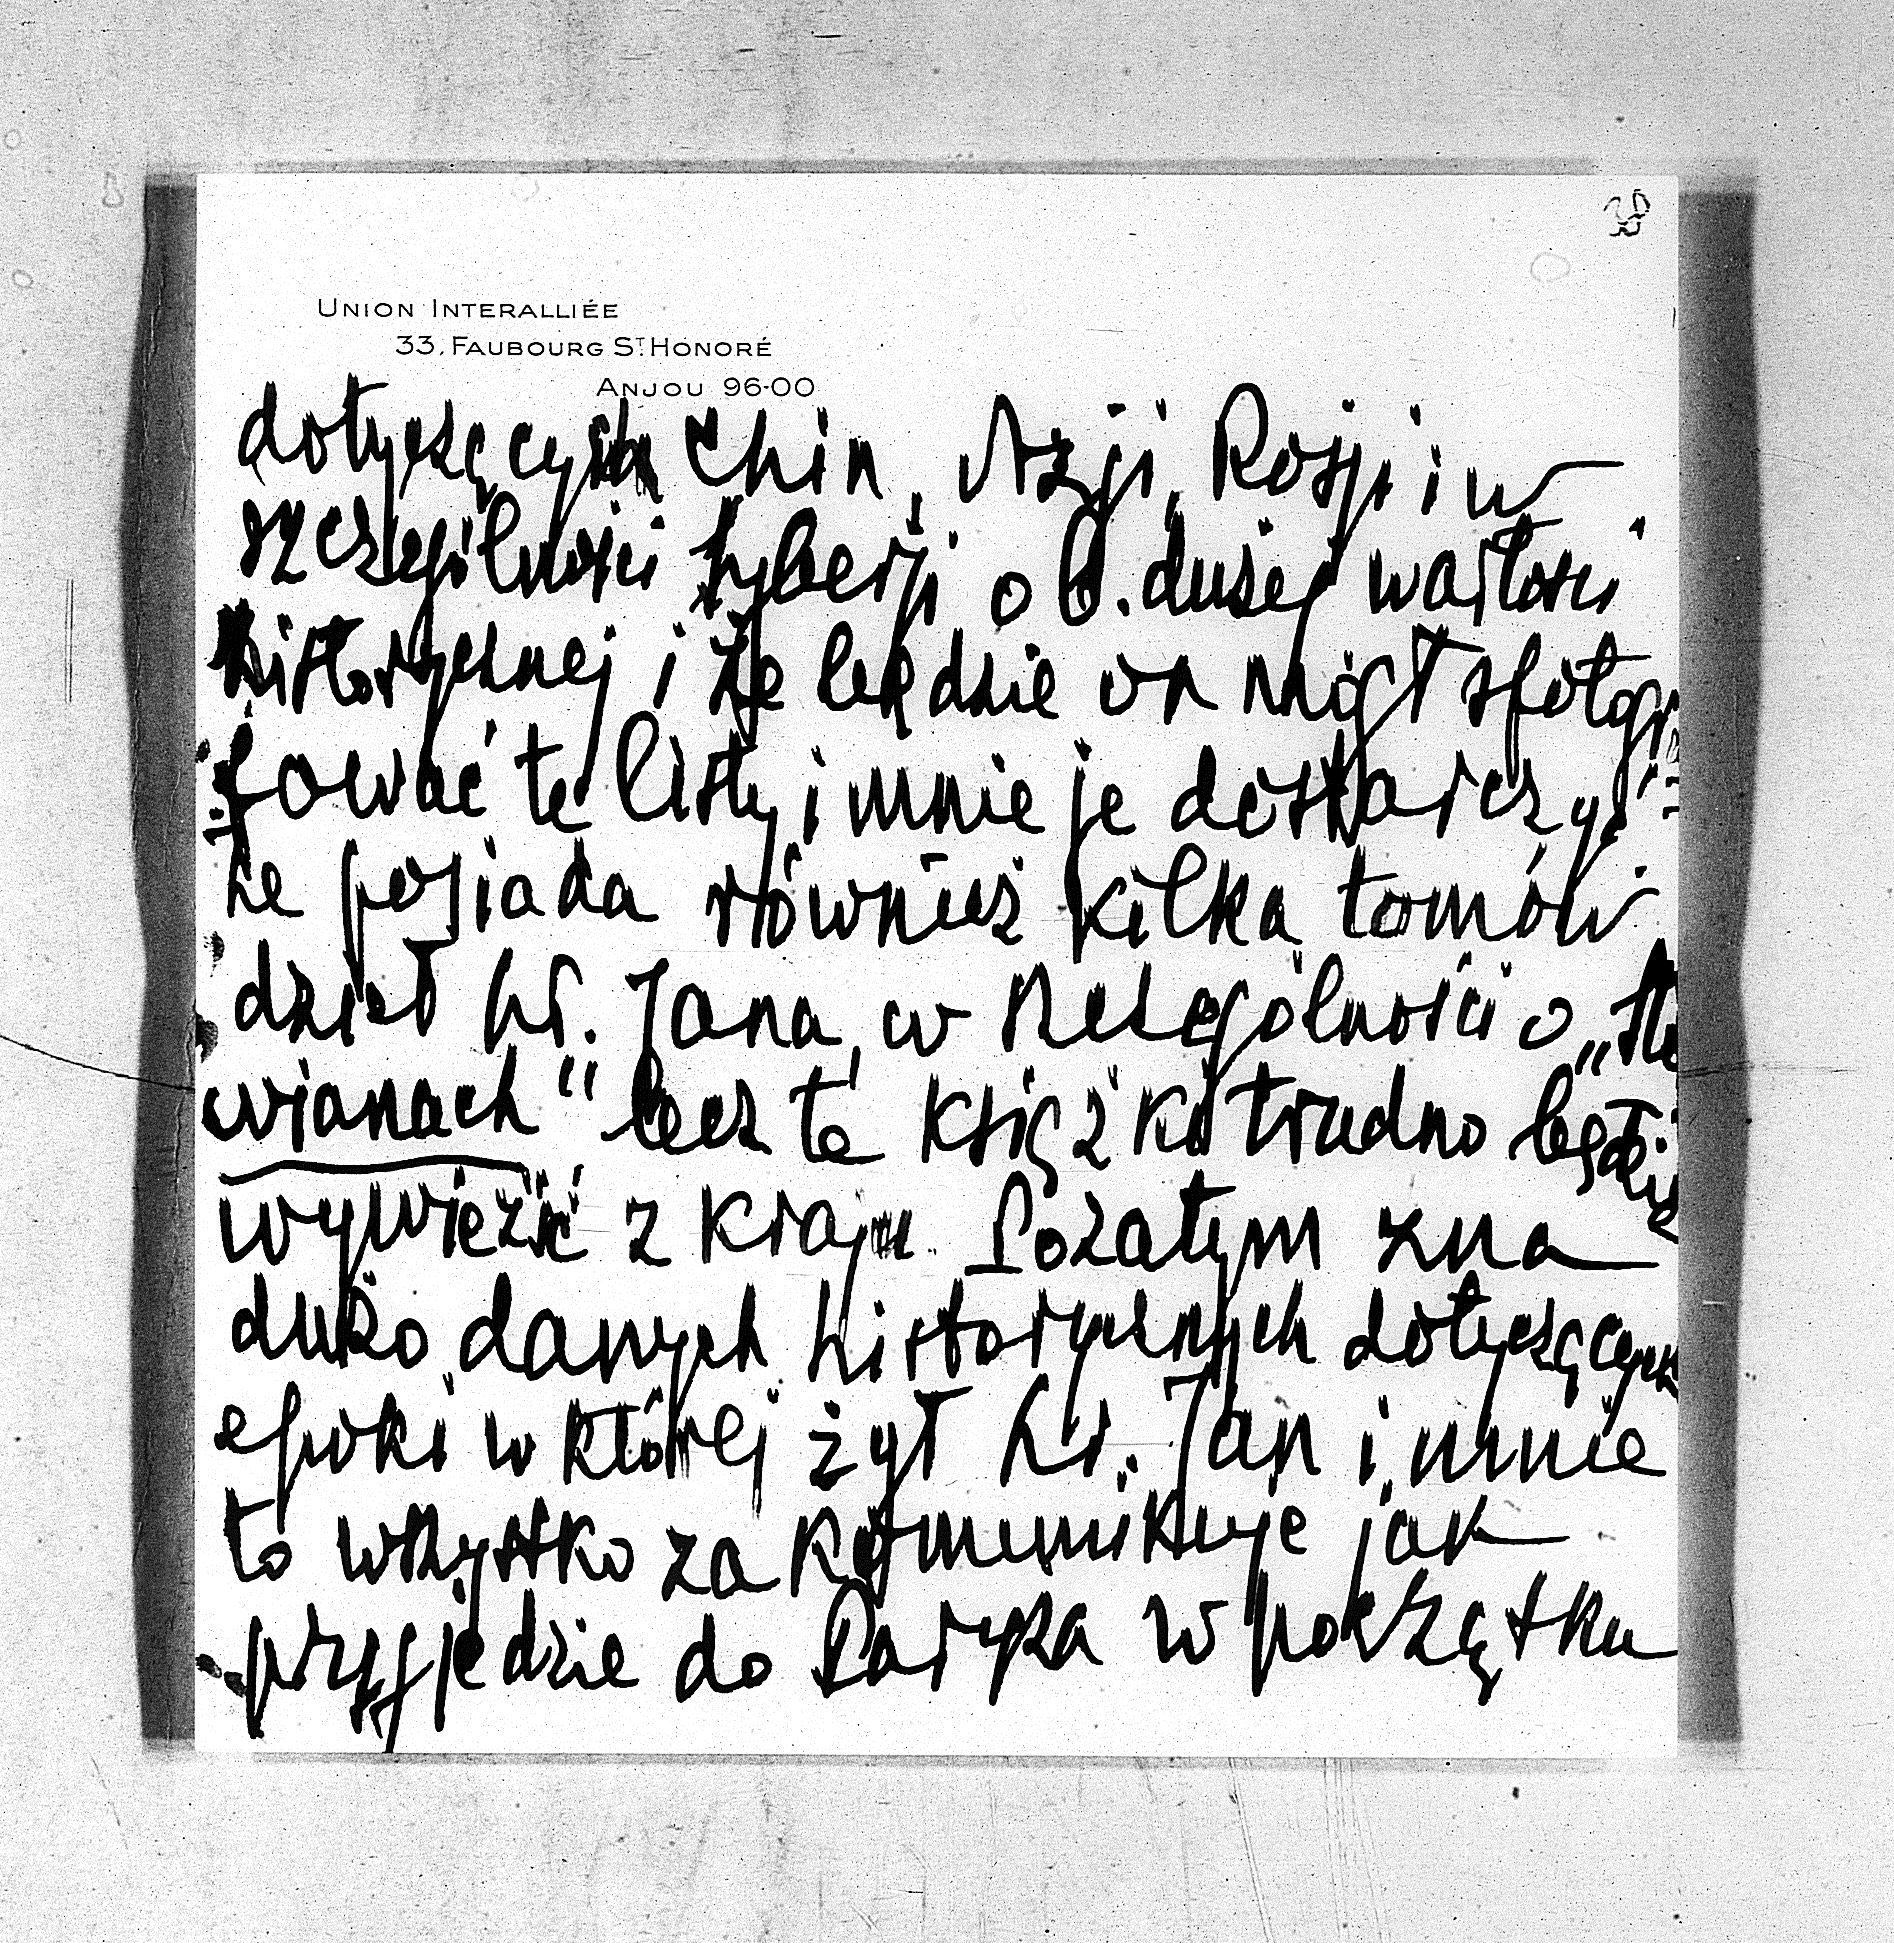 UNION INTERALLIÉE
33, FAUBOURG ST. HONORÉ
ANJOU 96-00
dotyczących Chin, Azji, Rosji i w
szczególności Syberji o b. dużej wartości
historycznej i że będzie on mógł sfotogra
fować te listy i mnie je dostarczyć
że posiada również kilka tomów
dzieł hr. Jana, w szczególności o „Sło
wianach" lecz tę książkę trudno będzie
wywieźić z kraju. Pozatym zna
dużo danych historycznych dotyczących
epoki w której żył hr. Jan i mnie
to wszystko zakomunikuje jak
przyjedzie do Paryża w początku